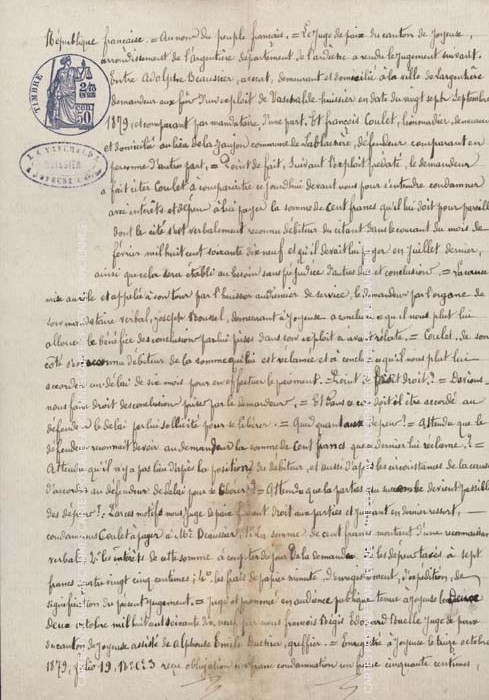 République française. = Au nom du peuple français. = Le Juge de paix du canton de Joyeuse,
arrondissement de l'argentière département de l'ardèche a rendu le jugement suivant.
Entre Adolphe Beaussier, avocat, demeurant et domicilié à la ville de Largentière
demandeur aux fins d'un exploit de Vaschalde huissier en date du vingt sept Septembre
1879, et comparant par mandataire, d'une part. Et françois Coulet, limonadier, demeurant
et domicilié au lieu de la commune de Lablachère, défendeur comparant en
personne d'autre part. = Point de fait, Suivant l'exploit prédaté, le demandeur
a fait citer Coulet à comparaître ce jourd'hui devant nous pour s'entendre condamner
avec intérêts et dépens à lui payer la somme de Cent francs qu'il lui doit pour pareille
dont le cité s'est verbalement reconnu débiteur du citant dans le courant du mois de
février mil huit cent soixante dix neuf et qu'il devait lui payer en Juillet dernier,
ainsi que cela sera établi au besoin sans préjudice d'autres dus et conclusion. = La cause
mise au rôle et appelée à son tour par l'huissier audiencier de service, le demandeur par l'organe de
son mandataire verbal, Joseph Roussel, demeurant à Joyeuse a conclu à ce qu'il nous plut lui
allouer le bénéfice des conclusions par lui prises dans son exploit = Coulet, de son
côté reconnu débiteur de la somme qu'il lui est réclamée et a conclu à ce qu'il nous plut lui
accorder un délai de six mois pour en effectuer le paiement. = Point de droit. = Devions
nous faire droit des conclusions prises par le demandeur. = Et dans ce cas doit-il être accordé au
défendeur le délai par lui sollicité pour se libérer. = Quid quant aux dépens? = Attendu que le
défendeur reconnait devoir au demandeur la somme de Cent francs que ce dernier lui réclame? =
Attendu qu'il n'y a pas lieu d'après la position du débiteur, et aussi d'après les circonstances de la cause
d'accorder au défendeur de délai pour se libérer? = Attendu que la partie qui succombe devient passible
des dépens? Par ces motifs nous Juge de paix faisant droit aux parties et jugeant en dernier ressort,
condamnons Coulet à payer à Mr. Beaussier 1° la somme de cent francs montant d'une reconnaissance
verbale, 2° les intérêts de cette somme à compter du jour de la demande 3° les dépens taxés à sept
francs quatre vingt cinq centimes; 4° les frais de papier minute, d'enregistrement, d'expédition, de
signification du présent Jugement. = Jugé et prononcé en audience publique tenue à Joyeuse le
deux octobre mil huit cent soixante dix neuf par nous françois Régis Edouard Juge de paix
du canton de Joyeuse assisté de Alphonse Emile greffier. = Enregistré à Joyeuse le treize octobre
1879, folio 19, reçu obligation un franc condamnation un franc cinquante centimes,
TIMBRE
50
VASCHALDE
HUISSIER
A JOYEUSE